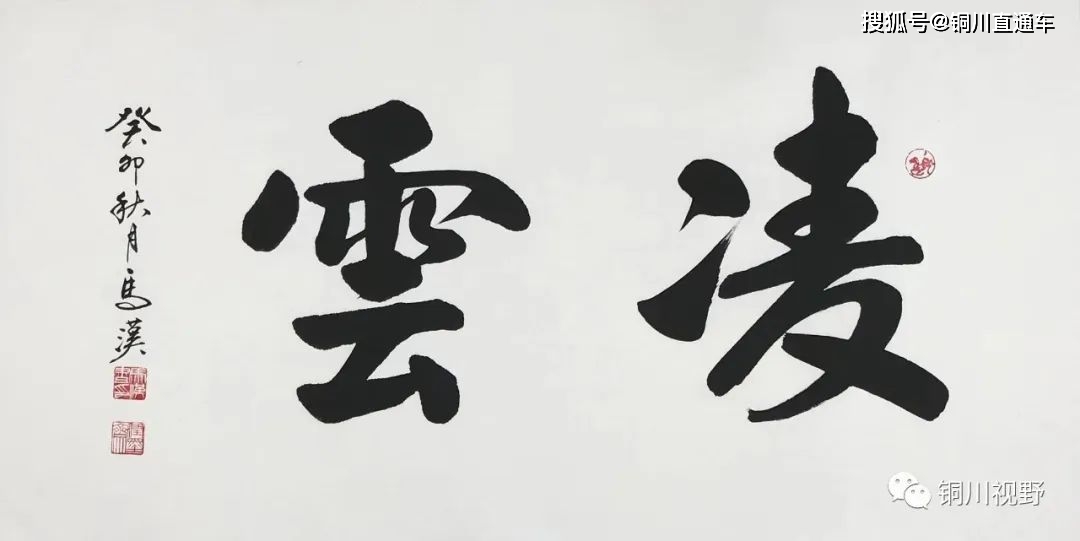 搜狐号@铜川直通车
凌雲
癸卯秋月馬漢
铜川视野